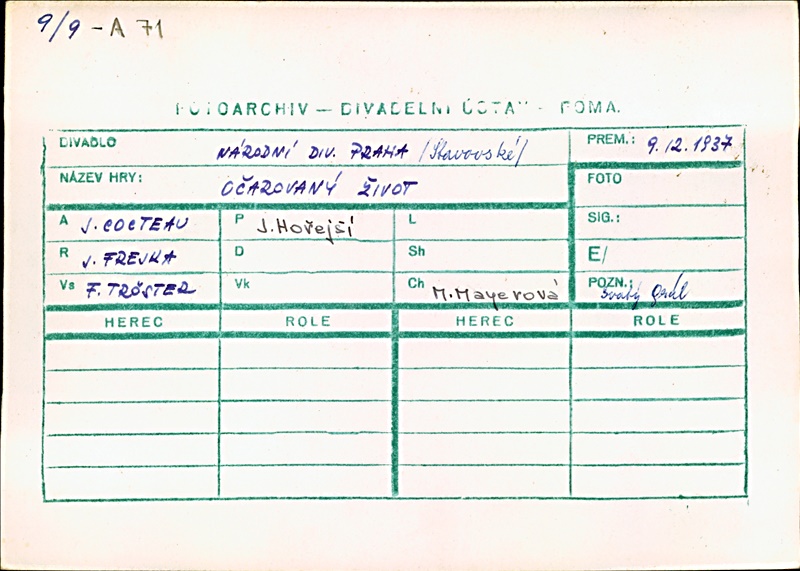 9/9 - A 71
FOTOARCHIV — DIVADELNÍ ÚSTAV - POMA.
DIVADLO NÁRODNÍ DIV. PRAHA /Stavovské/ PREM.: 9.12.1937
NÁZEV HRY: OČAROVANÝ ŽIVOT FOTO
A J. COCTEAU P J. Hořejší L SIG.:
R J. FREJKA D Sh E/
Vs F. TRÖSTER Vk Ch M. Mayerová POZN.: Svatý grál
HEREC ROLE HEREC ROLE